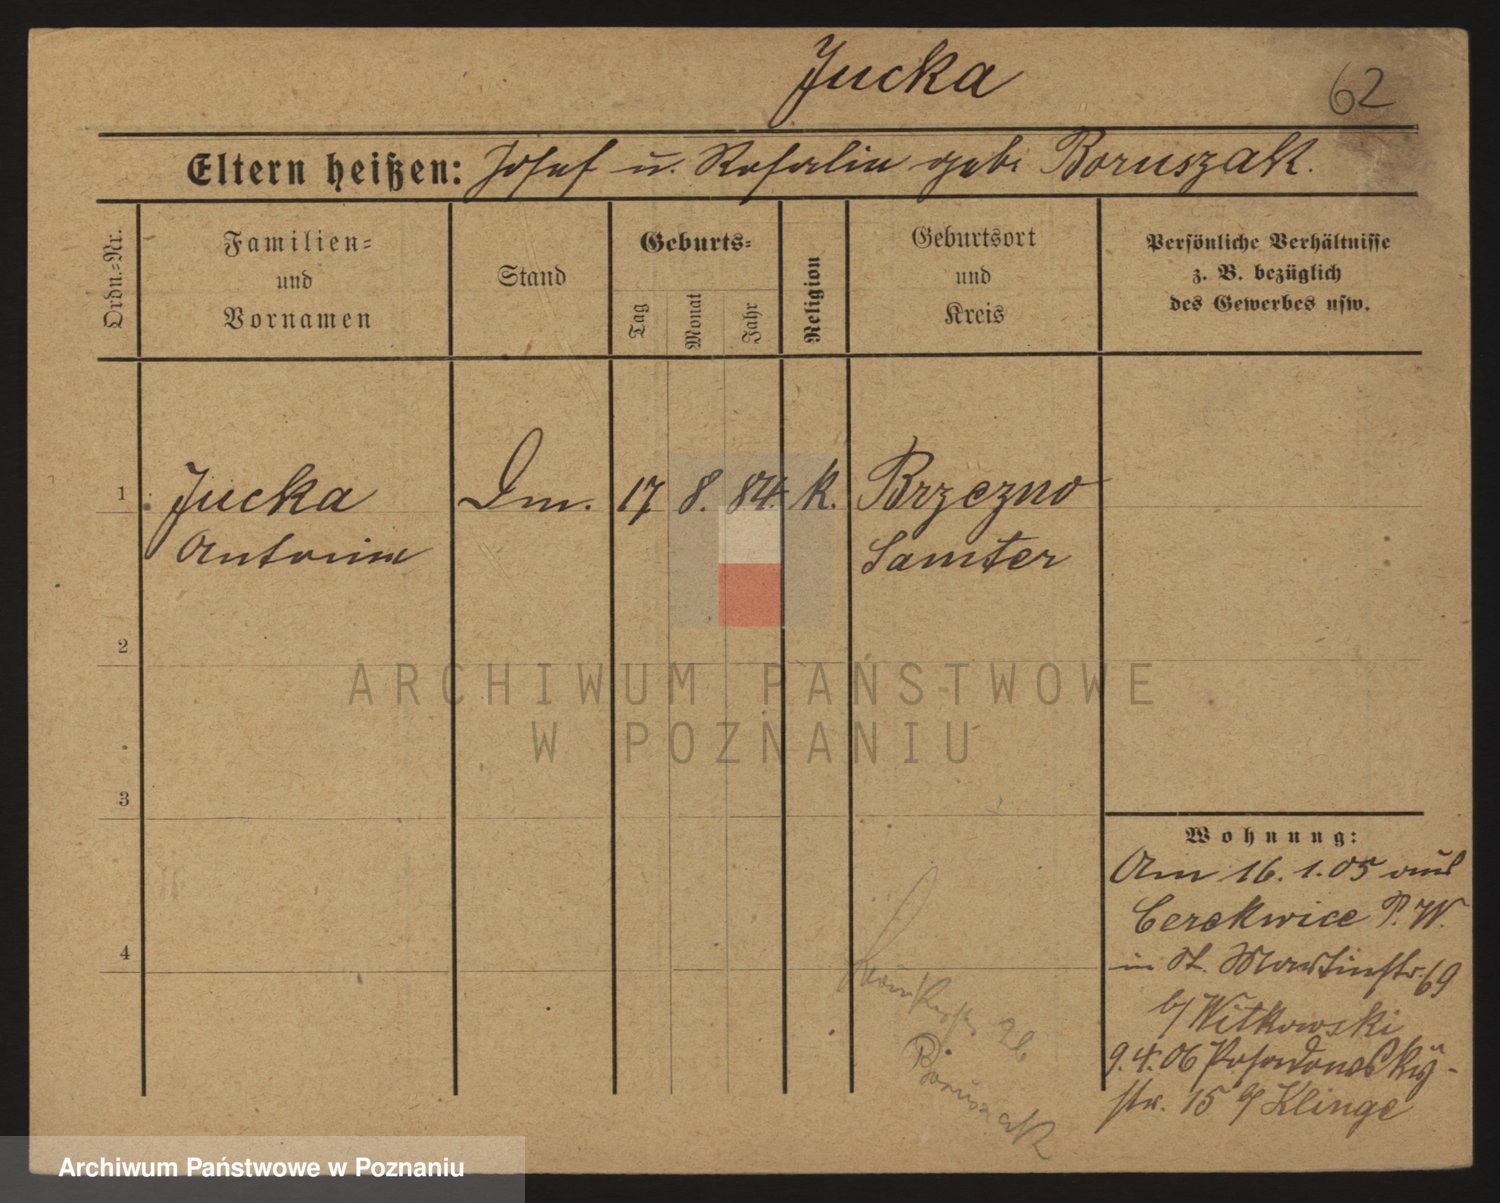 Jucka
62
Eltern heißen: Josef u. Rosalie geb. Boruszak.
Ordn.-Nr.
Familien-
und
Vornamen
Stand
Geburts-
Tag
Monat
Jahr
Religion
Geburtsort
und
Kreis
Persönliche Verhältnisse
z. B. bezüglich
des Gewerbes usw.
1 Jucka Dm. 17 8. 84. k. Brzezno
Antonine Samter
2
3
4
Wohnung:
Am 16.1.05 aus
Cerekwice P. W.
in St. Martinstr. 69
b/ Witkowski
9.4.06 Posadowsky-
str. 15 b/ Klinge
26
Boruszak
ARCHIWUM PAŃSTWOWE
W POZNANIU
Archiwum Państwowe w Poznaniu